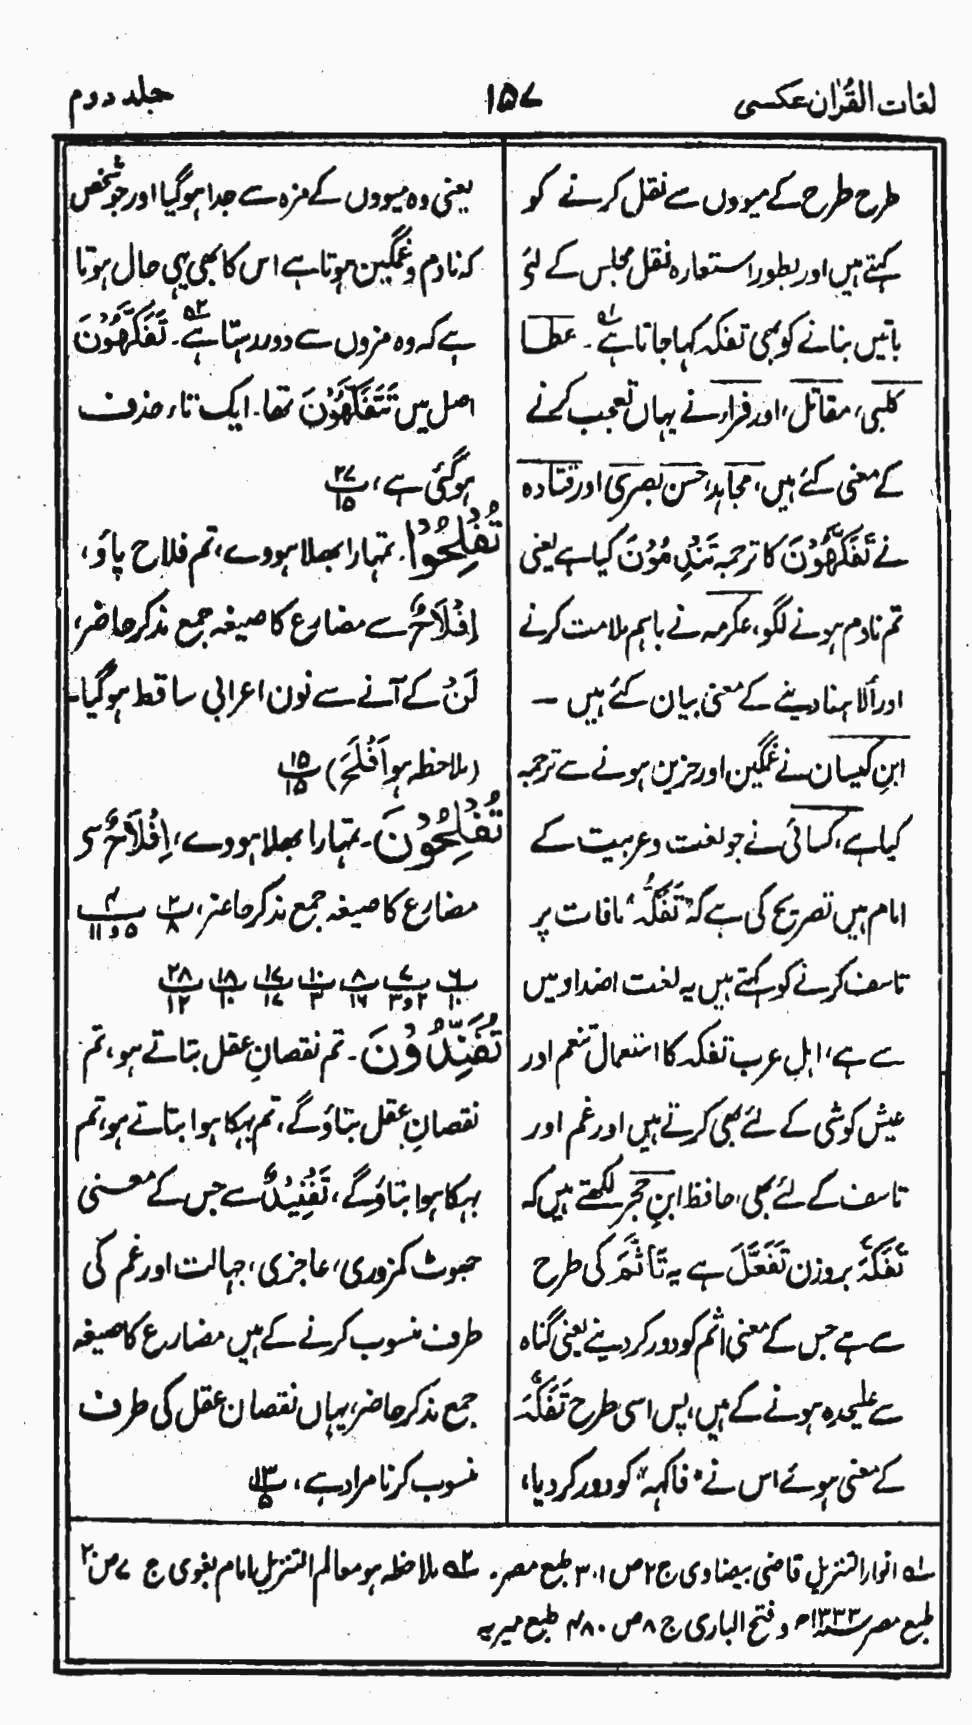 لغات القرآن عکسی ۱۵۷ جلد دوم
طرح طرح کے میووں سے نقل کرنے کو
کہتے ہیں اور بطور استعارہ نقل مجلس کے لئے
باتیں بنانے کو بھی تفکہ کہا جاتا ہے لہ ۔ عطا
کلبی، مقاتل، اور فراء نے یہاں تعجب کرنے
کے معنی کئے ہیں، مجاہد، حسن بصری اور قتادہ
نے تَفَكَّهُوْنَ کا ترجمہ تَنَدَّمُوْنَ کیا ہے یعنی
تم نادم ہونے لگو، عکرمہ نے باہم ملامت کرنے
اور اُلاہنا دینے کے معنی بیان کئے ہیں —
ابنِ کیسان نے غمگین اور حزین ہونے سے ترجمہ
کیا ہے، کسائی نے جو لغت و عربیت کے
امام ہیں تصریح کی ہے کہ "تَفَكُّہ" مافات پر
تاسف کرنے کو کہتے ہیں یہ لغت اضداد میں
سے ہے، اہلِ عرب تفکہ کا استعمال تنعم اور
عیش کوشی کے لئے بھی کرتے ہیں اور غم اور
تاسف کے لئے بھی، حافظ ابنِ حجر لکھتے ہیں کہ
تَفَكَّہَ بروزن تَفَعَّلَ ہے یہ تَأَثَّمَ کی طرح
سے ہے جس کے معنی اِثم کو دور کر دینے یعنی گناہ
سے علیحدہ ہونے کے ہیں، پس اسی طرح تَفَكَّہَ
کے معنی ہوئے اس نے "فاکہہ" کو دور کر دیا،
یعنی وہ میووں کے مزہ سے جدا ہو گیا اور جو شخص
کہ نادم و غمگین ہوتا ہے اس کا بھی یہی حال ہوتا
ہے کہ وہ مزوں سے دور رہتا ہے ۲ہ ۔ تَفَكَّهُوْنَ
اصل میں تَتَفَكَّهُوْنَ تھا۔ ایک تاء حذف
ہو گئی ہے، ۲۷/۱۵
تُفْلِحُوْا ۔ تمہارا بھلا ہووے، تم فلاح پاؤ،
اِفْلَاحٌ سے مضارع کا صیغہ جمع مذکر حاضر،
لَنْ کے آنے سے نون اعرابی ساقط ہو گیا۔
(ملاحظہ ہو اَفْلَحَ) ۱۵/۱۵
تُفْلِحُوْنَ ۔ تمہارا بھلا ہووے، اِفْلَاحٌ سی
مضارع کا صیغہ جمع مذکر حاضر، ۲/۸ ۴/۵و۱۱
۶/۱۰ ۷/۲و۳ ۸/۱۶ ۱۰/۳ ۱۷/۱۷ ۱۸/۱۰ ۲۸/۱۲
تُفَنِّدُوْنَ ۔ تم نقصانِ عقل بتاتے ہو، تم
نقصانِ عقل بتاؤ گے، تم بہکا ہوا بتاتے ہو، تم
بہکا ہوا بتاؤ گے، تَفْنِيْدٌ سے جس کے معنی
جھوٹ کمزوری، عاجزی، جہالت اور غم کی
طرف منسوب کرنے کے ہیں مضارع کا صیغہ
جمع مذکر حاضر، یہاں نقصان عقل کی طرف
منسوب کرنا مراد ہے، ۱۳/۵
لہ انوار التنزیل قاضی بیضاوی ج ۲ ص ۳۰۱ طبع مصر۔ ۲ہ ملاحظہ ہو معالم التنزیل امام بغوی ج ۷ ص ۲۰
طبع مصر ۱۳۳۲ھ و فتح الباری ج ۸ ص ۴۸۰ طبع میریہ